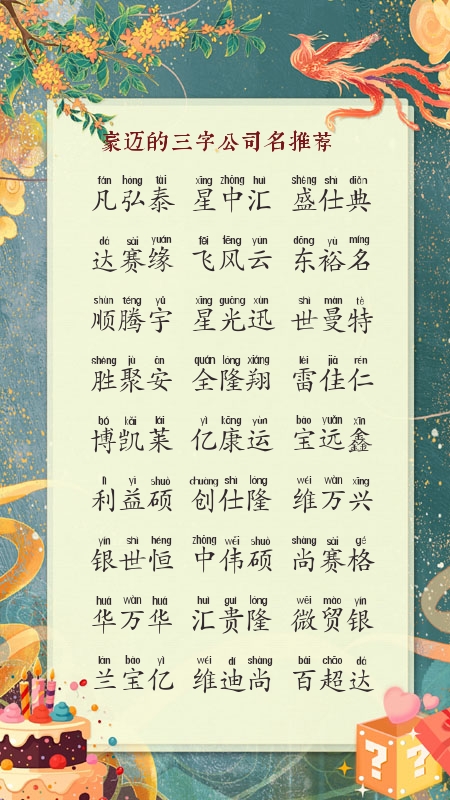 豪迈的三字公司名推荐
fán hóng tài xīng zhōng huì shèng shì diǎn
凡弘泰 星中汇 盛仕典
dá sài yuán fēi fēng yún dōng yù míng
达赛缘 飞风云 东裕名
shùn téng yǔ xīng guāng xùn shì màn tè
顺腾宇 星光迅 世曼特
shèng jù ān quán lóng xiáng léi jiā rén
胜聚安 全隆翔 雷佳仁
bó kǎi lái yì kāng yùn bǎo yuǎn xīn
博凯莱 亿康运 宝远鑫
lì yì shuò chuàng shì lóng wéi wàn xīng
利益硕 创仕隆 维万兴
yín shì héng zhōng wěi shuò shàng sài gé
银世恒 中伟硕 尚赛格
huá wàn huá huì guì lóng wēi mào yín
华万华 汇贵隆 微贸银
lán bǎo yì wéi dí shàng bǎi chāo dá
兰宝亿 维迪尚 百超达
? ?